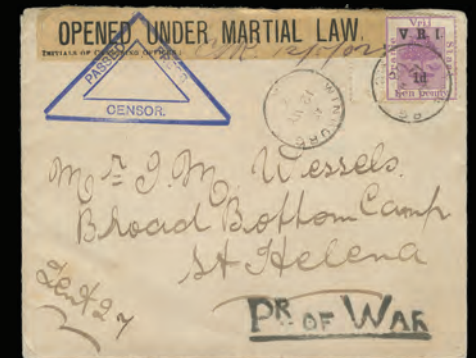 OPENED UNDER MARTIAL LAW.
INITIALS OF OPENING OFFICER:
PASSED PRESS
CENSOR.
WINBURG
Vrij
Oranje Staat
V. R. I.
1d
Een Penny
Mr. J. M. Wessels.
Broad Bottom Camp
St Helena
Tent 27
PR. OF WAR